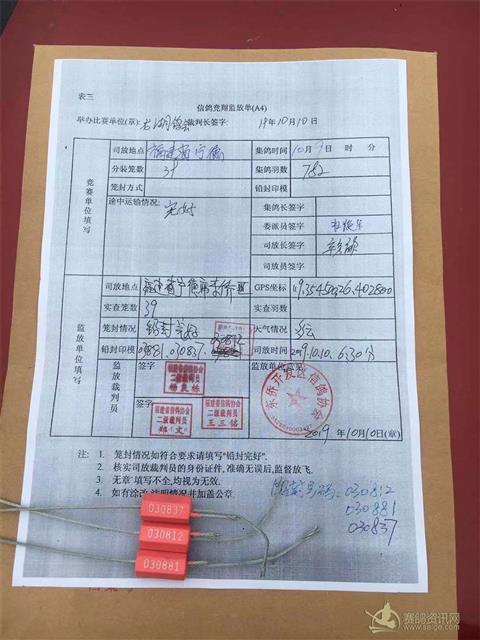 表三
信鸽竞翔监放单(A4)
举办比赛单位(章): 裁判长签字: 19年10月10日
竞赛单位填写
司放地点 福建省宁德 集鸽时间 10月9日 时 分
分装笼数 39 集鸽羽数 782
笼封方式 铅封印模
途中运输情况: 完好 集鸽长签字
委派员签字
司放长签字
司放员签字
监放单位填写
司放地点 福建省宁德市东侨区 GPS坐标
实查笼数 39 实查羽数
笼封情况 铅封完好 天气情况 多云
铅封印模 030881.030837. 030812 司放时间 2019.10.10.6:30分
监放裁判员 签字 监放单位意见
福建省信鸽协会
二级裁判员
签字
福建省信鸽协会
二级裁判员
福建省信鸽协会
二级裁判员
王三铭
东侨开发区信鸽协会
2019年10月10日(章)
注: 1. 笼封情况如符合要求请填写"铅封完好".
2. 核实司放裁判员的身份证件,准确无误后,监督放飞.
3. 无章 填写不全,均视为无效.
4. 如有涂改,注明情况并加盖公章.
030812
030881
030837
030837
030812
030881
赛鸽资讯网
www.saige.com